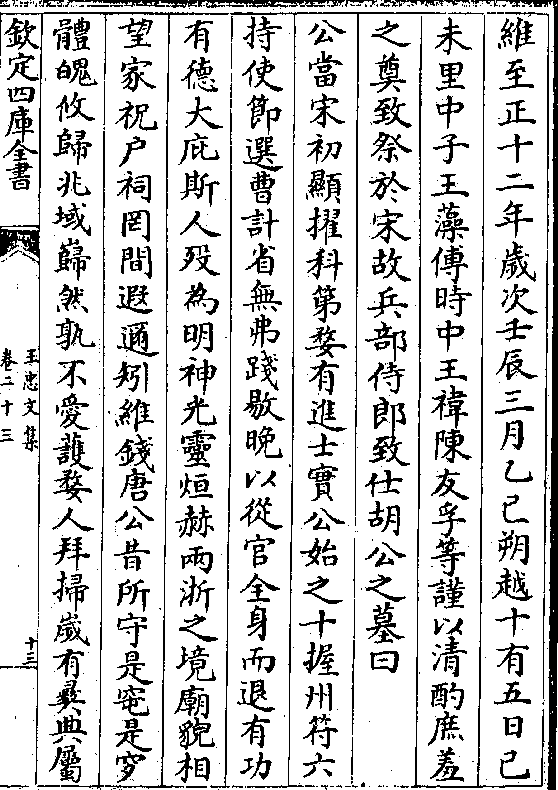 維至正十二年歲次壬辰三月乙巳朔越十有五日己
未里中子王藻傅時中王禕陳友孚等謹以清酌庶羞
之奠致祭於宋故兵部侍郎致仕胡公之墓曰
公當宋初顯擢科第婺有進士實公始之十握州符六
持使節選曹計省無弗踐敭晚以從官全身而退有功
有德大庇斯人歿為明神光靈烜赫兩浙之境廟貌相
望家祝户祠罔間遐邇矧維錢唐公昔所守是窀是穸
體魄攸歸兆域巋然孰不愛䕶婺人拜掃歲有彛典屬
欽定四庫全書
王忠文集
卷二十三
十三